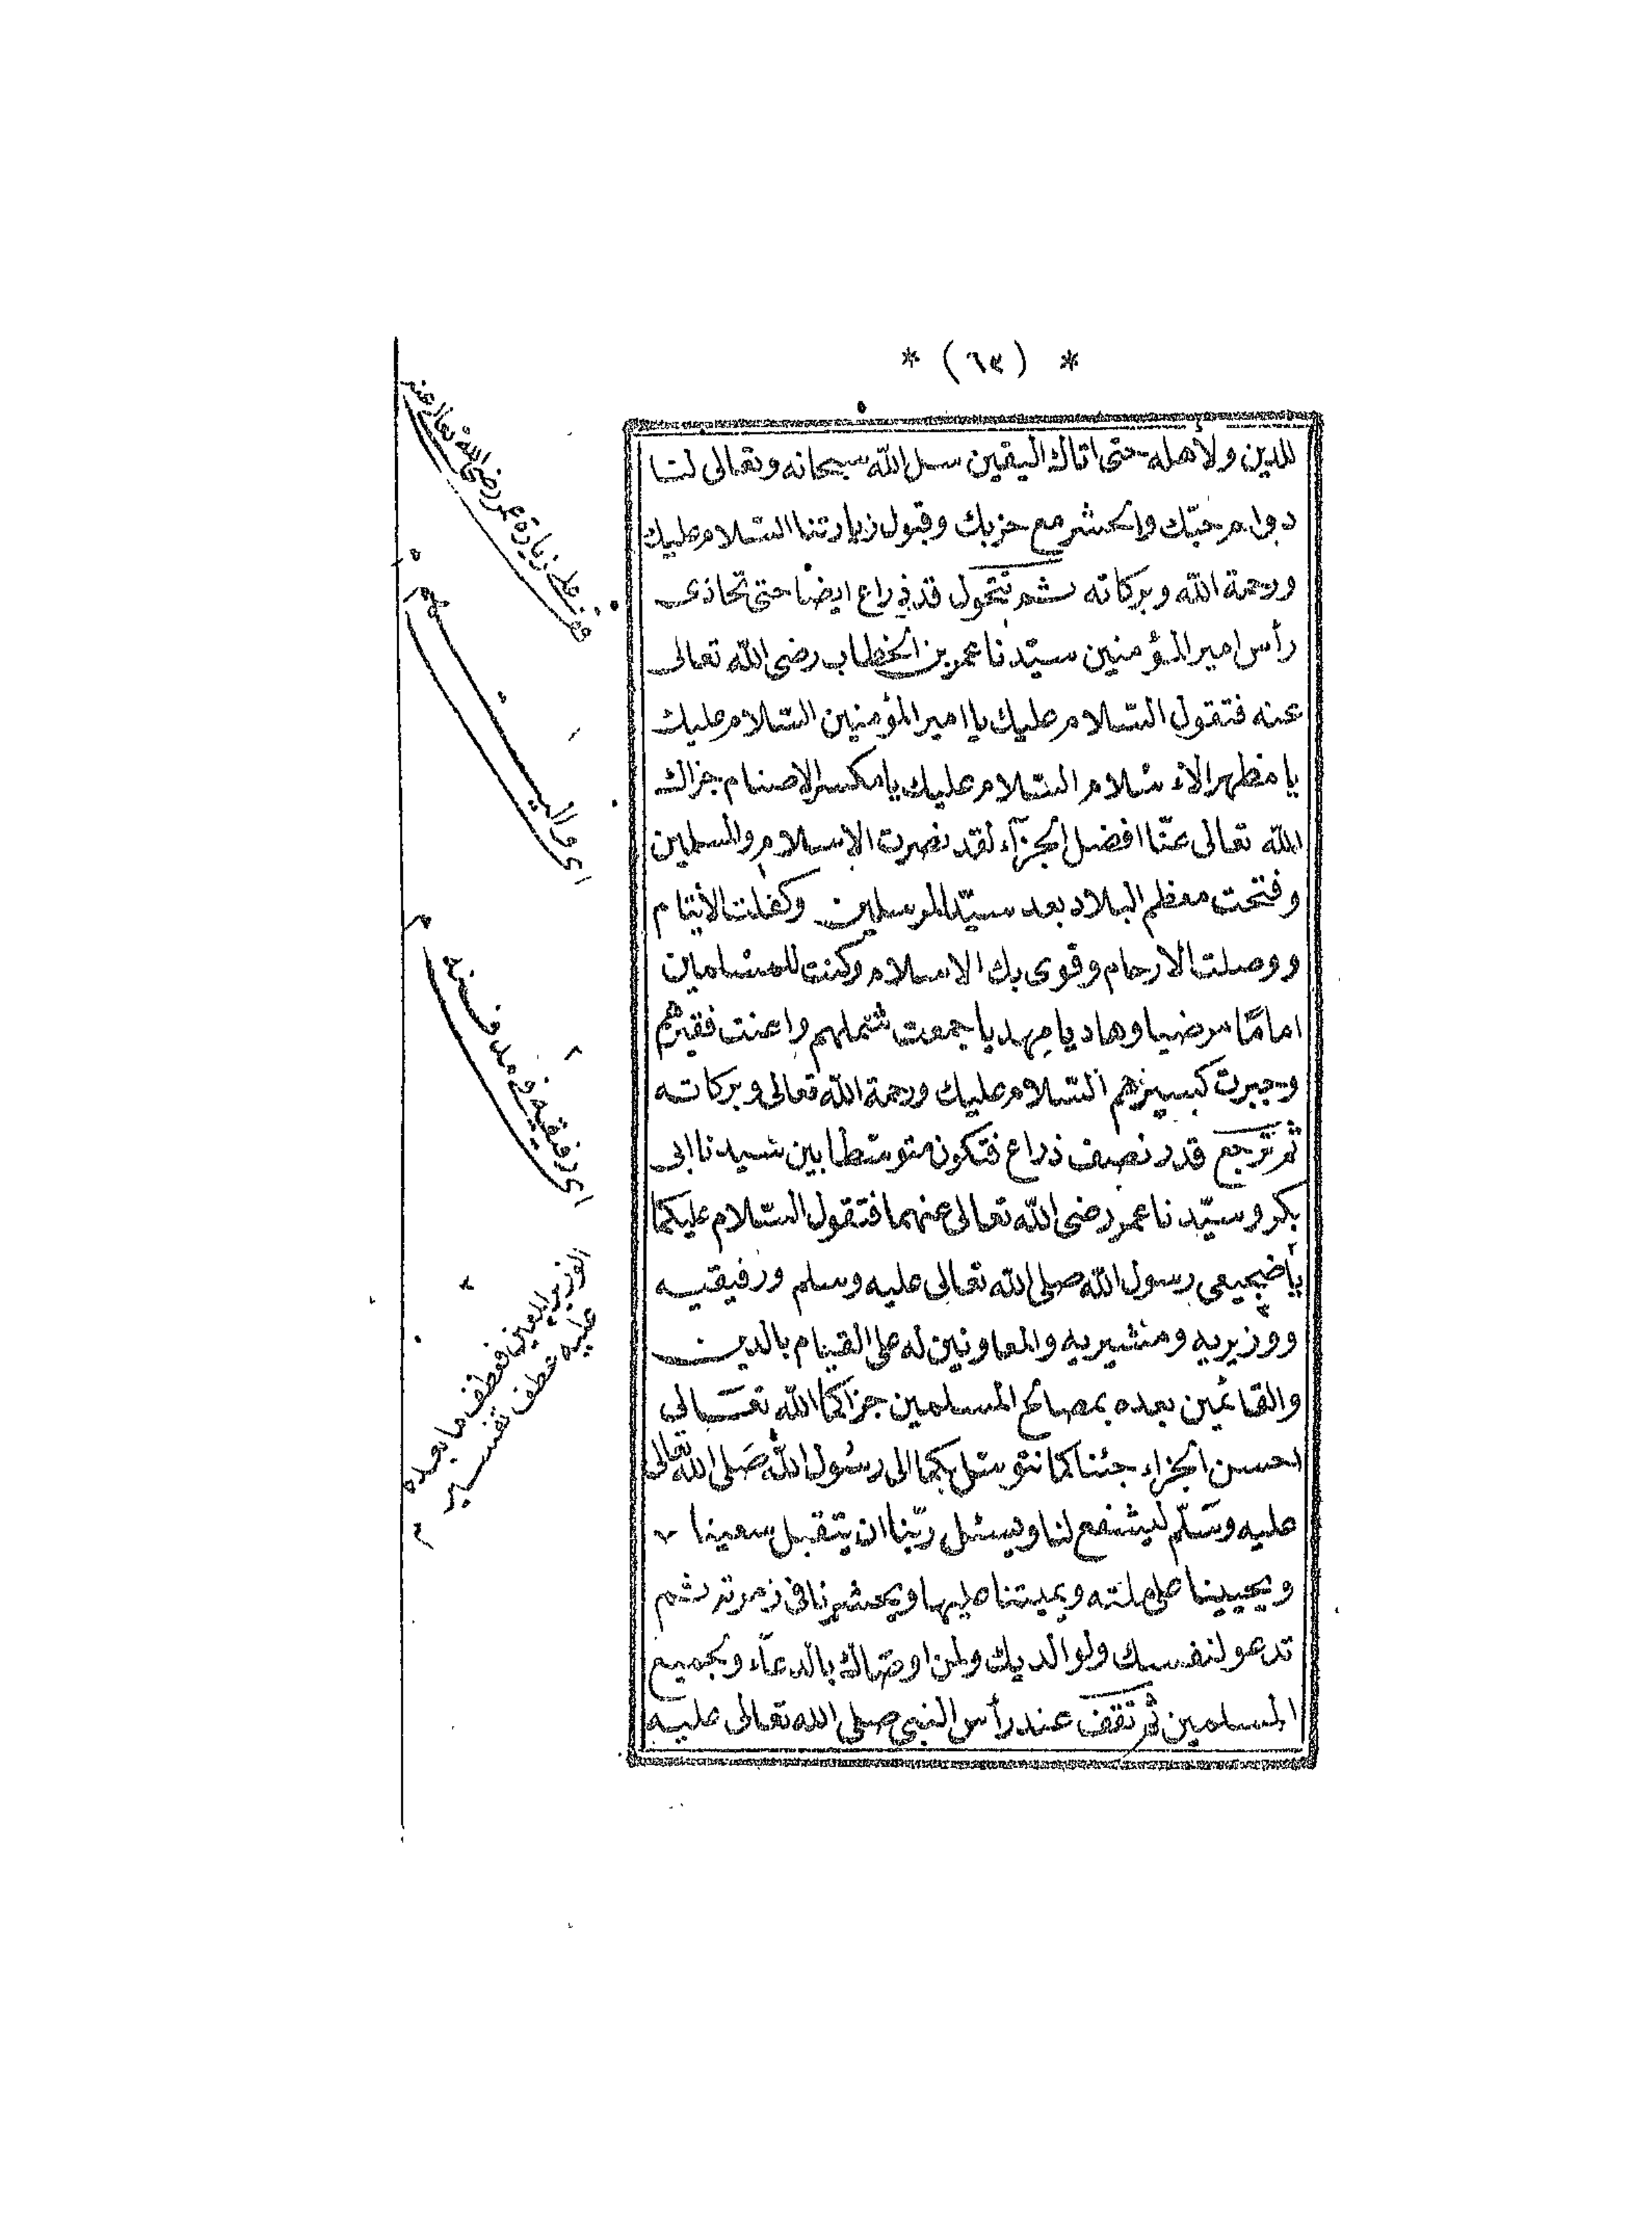 * (٦٤) *
للدين ولأهله حتى اتاك اليقين سل الله سبحانه وتعالى لنا
دوام حبّك والحشر مع حزبك وقبول زيارتنا السّلام عليك
ورحمة الله وبركاته ثم تتحول قدر ذراع ايضا حتى تحاذى
رأس امير المؤمنين سيّدنا عمر بن الخطاب رضى الله تعالى
عنه فتقول السّلام عليك يا امير المؤمنين السّلام عليك
يا مظهر الاسلام السّلام عليك يا مكسر الاصنام جزاك
الله تعالى عنّا افضل الجزآء لقد نصرت الاسلام والمسلمين
وفتحت معظم البلاد بعد سيّد المرسلين وكفلت الأيتام
ووصلت الارحام وقوى بك الاسلام وكنت للمسلمين
امامًا مرضيا وهاديا مهديا جمعت شملهم واعنت فقيرهم
وجبرت كسيرهم السّلام عليك ورحمة الله تعالى وبركاته
ثم ترجع قدر نصف ذراع فتكون متوسّطا بين سيدنا ابى
بكر وسيّدنا عمر رضى الله تعالى عنهما فتقول السّلام عليكما
يا ضجيعى رسول الله صلى الله تعالى عليه وسلم ورفيقيه
ووزيريه ومشيريه والمعاونين له على القيام بالدين
والقائمين بعده بمصالح المسلمين جزاكما الله تعالى
احسن الجزاء جئناكما نتوسّل بكما الى رسُول الله صَلى الله تعالى
عليه وسَلّم ليشفع لنا ويسئل ربّنا ان يتقبل سعينا
ويحيينا على ملته ويميتنا عليها ويحشرنا فى زمرته ثم
تدعو لنفسك ولوالديك ولمن اوصاك بالدعآء ولجميع
المسلمين ثم تقف عند رأس النبى صلى الله تعالى عليه
قف على زيارة عمر رضى الله تعالى عنه
اى رفيقيه فى مدفنه
الوزير المعين فعطف ما بعده
عليه عطف تفسير
م